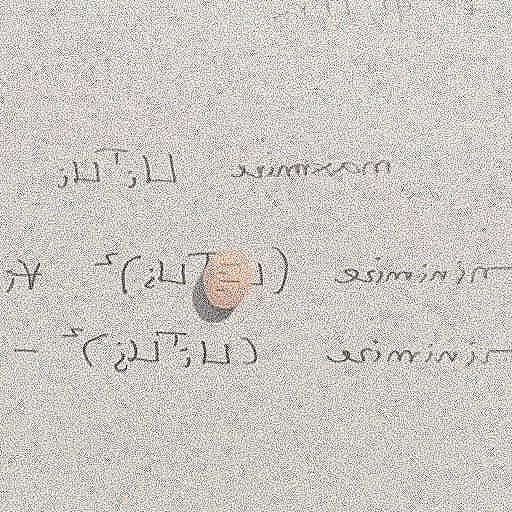 maximise U_i^T U_i
minimise (U^T U_j)^2 ∀i
minimise (U_i^T U_j)^2 -